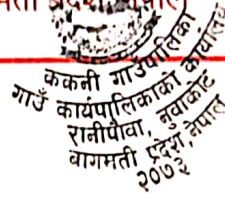 ककनी गाउँपालिका
गाउँ कार्यपालिकाको कार्यालय
रानीपौवा, नुवाकोट
बागमती प्रदेश, नेपाल
२०७३